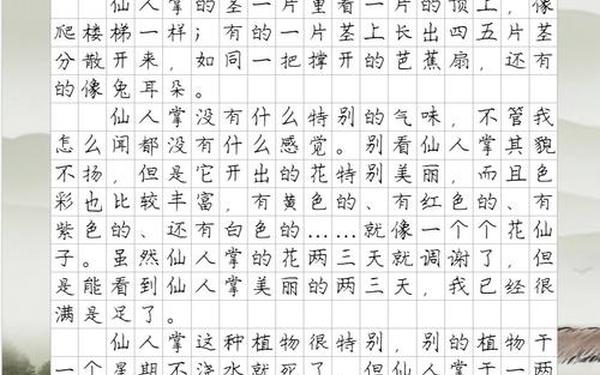 仙人掌的茎一片重着一片的顶上，像
爬楼梯一样；有的一片茎上长出四五片茎
分散开来，如同一把撑开的芭蕉扇，还有
的像兔耳朵。
仙人掌没有什么特别的气味，不管我
怎么闻都没有什么感觉。别看仙人掌其貌
不扬，但是它开出的花特别美丽，而且色
彩也比较丰富，有黄色的、有红色的、有
紫色的、还有白色的……就像一个个花仙
子。虽然仙人掌的花两三天就调谢了，但
是能看到仙人掌美丽的两三天，我已经很
满是足了。
仙人掌这种植物很特别，别的植物干
一个星期不浇水就死了，但仙人掌干一两